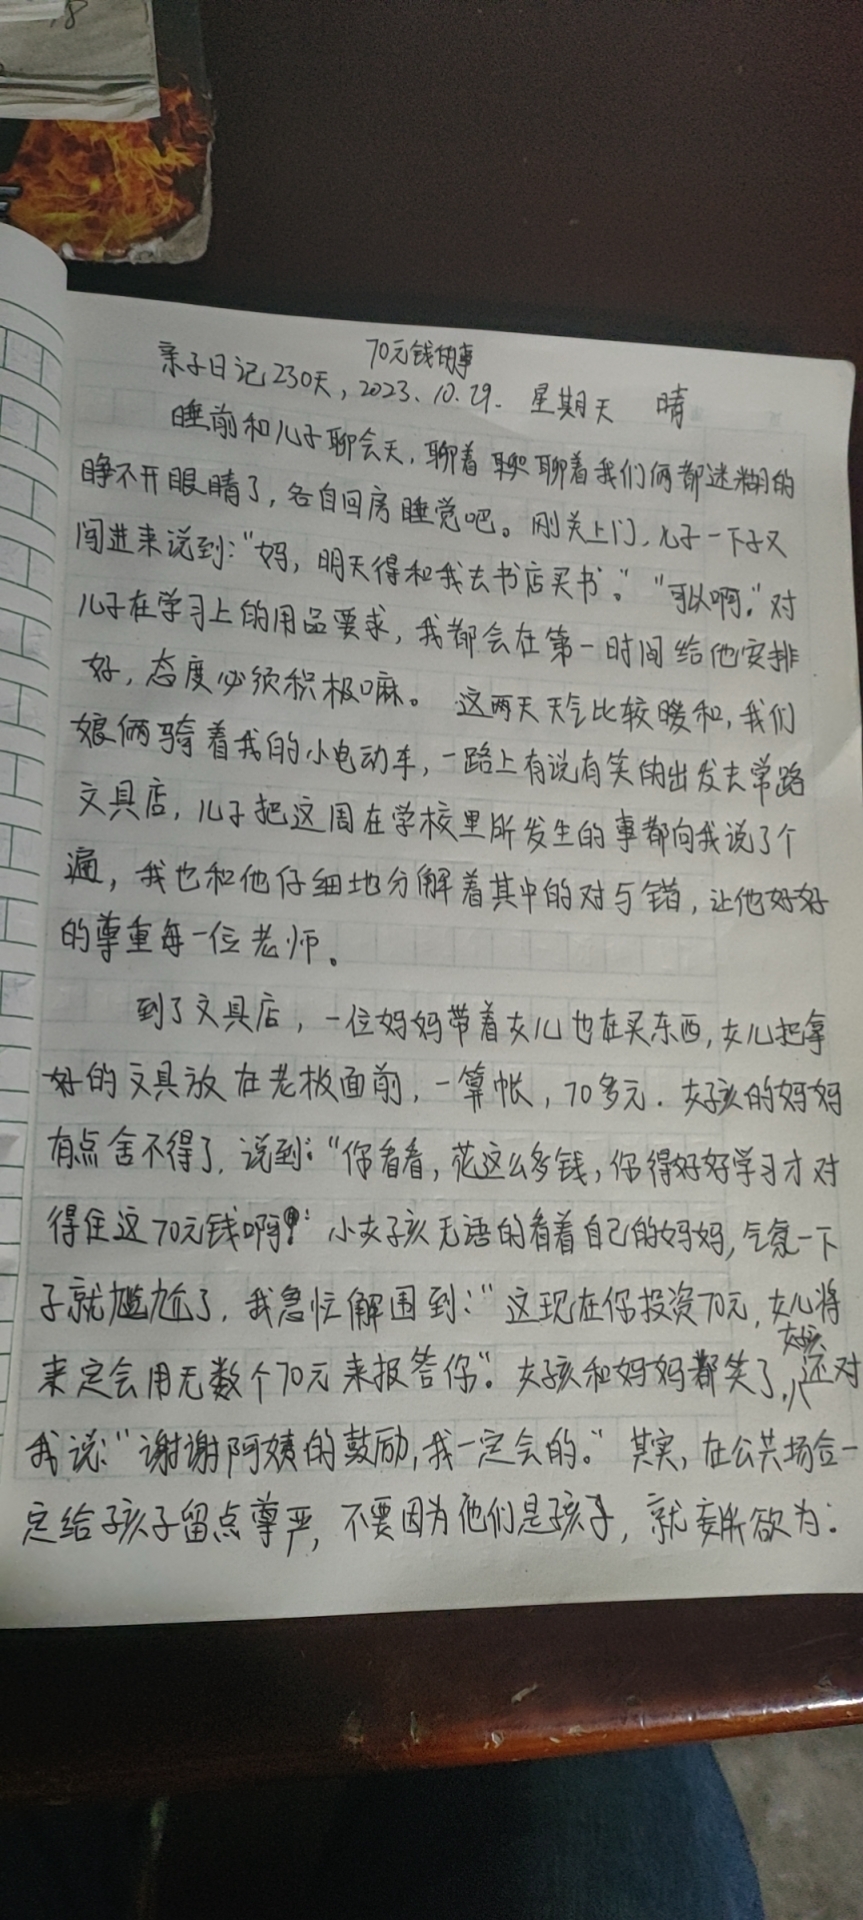 8
70元钱的事
亲子日记230天，2023.10.29. 星期天 晴
睡前和儿子聊会天，聊着聊聊着我们俩都迷糊的
睁不开眼睛了，各自回房睡觉吧。刚关上门，儿子一下子又
闯进来说到：“妈，明天得和我去书店买书。”“可以啊。”对
儿子在学习上的用品要求，我都会在第一时间给他安排
好，态度必须积极嘛。这两天天气比较暖和，我们
娘俩骑着我的小电动车，一路上有说有笑的出发去常路
文具店，儿子把这周在学校里所发生的事都向我说了个
遍，我也和他仔细地分解着其中的对与错，让他好好
的尊重每一位老师。
到了文具店，一位妈妈带着女儿也在买东西，女儿把拿
好的文具放在老板面前，一算帐，70多元.女孩的妈妈
有点舍不得了，说到：“你看看，花这么多钱，你得好好学习才对
得住这70元钱啊！小女孩无语的看着自己的妈妈，气氛一下
子就尴尬了，我急忙解围到：“这现在你投资70元，女儿将
来定会用无数个70元来报答你”。女孩和妈妈都笑了，女孩还对
我说：“谢谢阿姨的鼓励，我一定会的。”其实，在公共场合一
定给孩子留点尊严，不要因为他们是孩子，就妄所欲为：